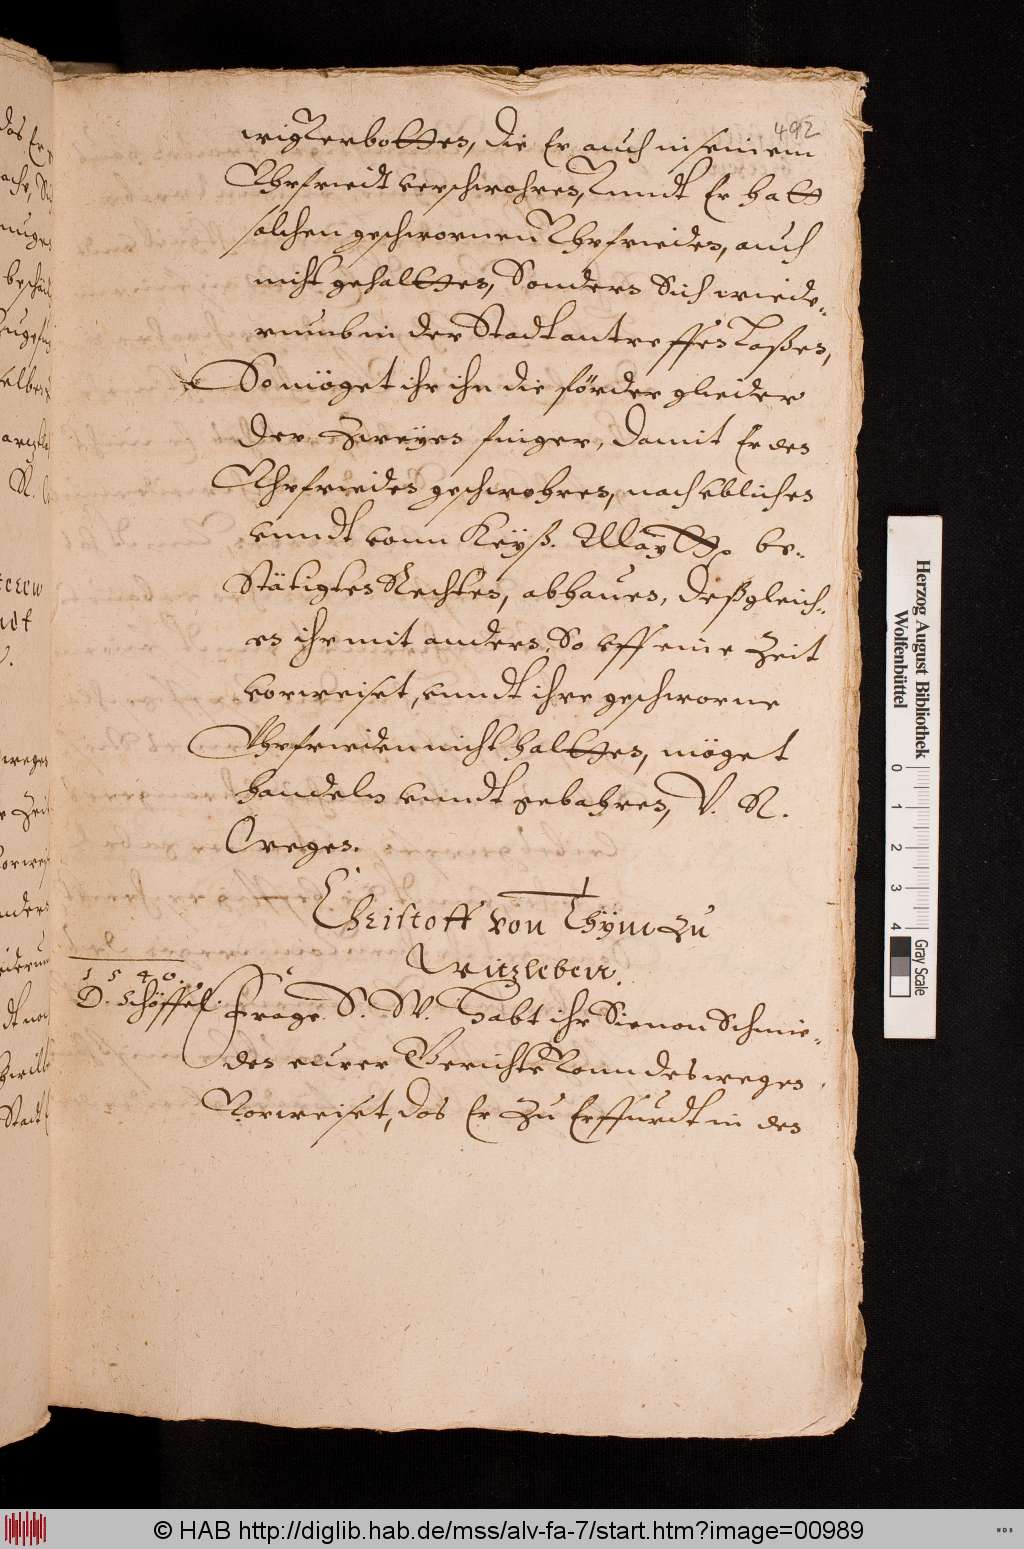 492
wig Verbottes, die Er auch in seinem
Vhrfriedt verschwohren, Vnndt Er hatt
solchen geschwornen Vhrfrieden, auch
nicht gehaltten, Sondern Sich wiede-
rumb in der Stadt antreffen Laßen,
So möget ihr ihn die förder glieder
der zweyen finger, damit Er den
Vhrfrieden geschwohren, nach vblichen
vnndt vonn Keyß. Maytt. be-
stätigten Rechten, abhauen, deßgleich-
en ihr mit andern, So vff eine Zeit
vorweiset, vnndt ihre geschworne
Vhrfrieden nicht haltten, möget
handeln vnndt gebahren, V. R.
wegen.
Christoff von Thÿm zu
Witzleben.
1540.
D. Schöffel.
Frage. S. W. Habt ihr Simon Schmie-
den eurer Gerichte Vonn deswegen
Vorweiset, das Er zu Erffurdt in den
das Er
nungen
Stadt
Herzog August Bibliothek
Wolfenbüttel
0 1 2 3 4
Gray Scale
© HAB http://diglib.hab.de/mss/alv-fa-7/start.htm?image=00989